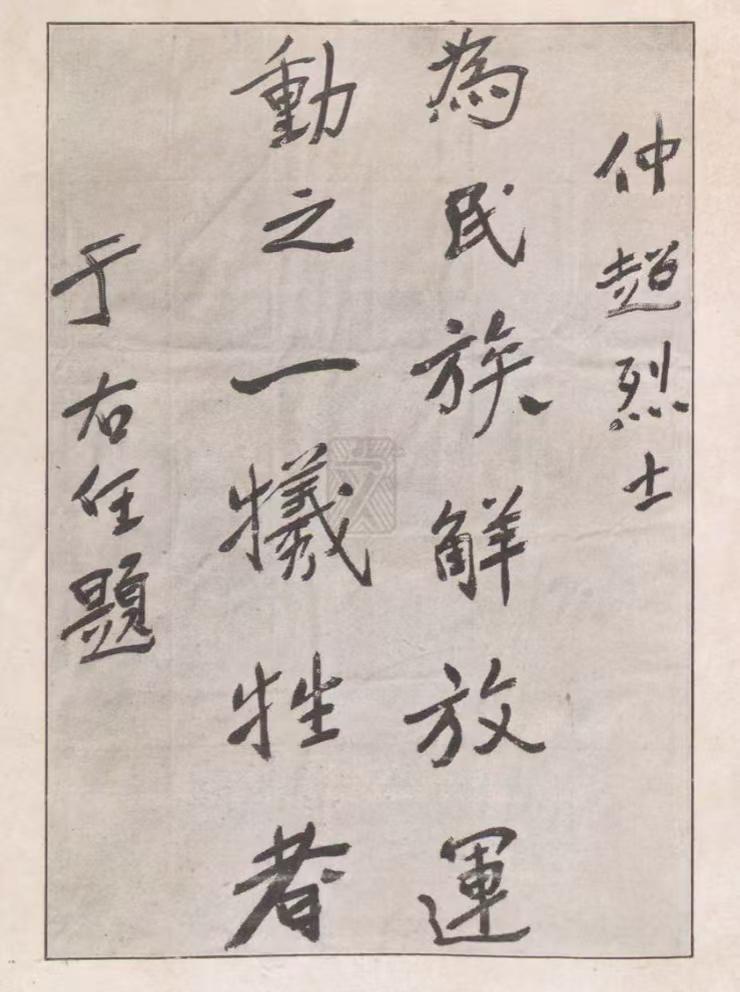 仲超烈士
為民族解放運
動之一犧牲者
于右任題